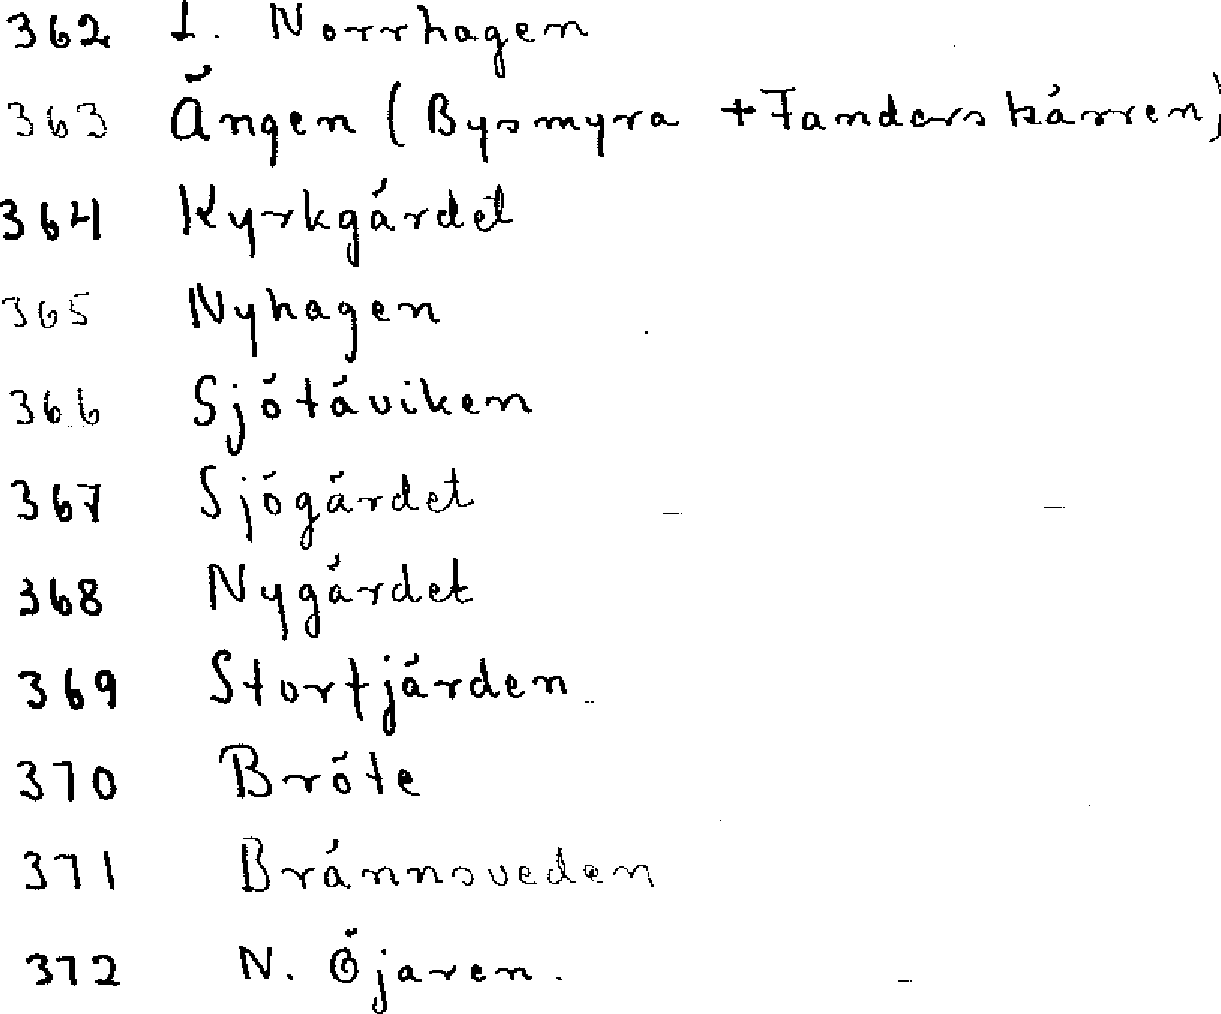 362 I. Norrhagen
363 Ängen (Bysmyra + Fandarskärren)
364 Kyrkgärdet
365 Nyhagen
366 Sjötäviken
367 Sjögärdet
368 Nygärdet
369 Stortjärden
370 Bröte
371 Brännsveden
372 N. Öjaren.